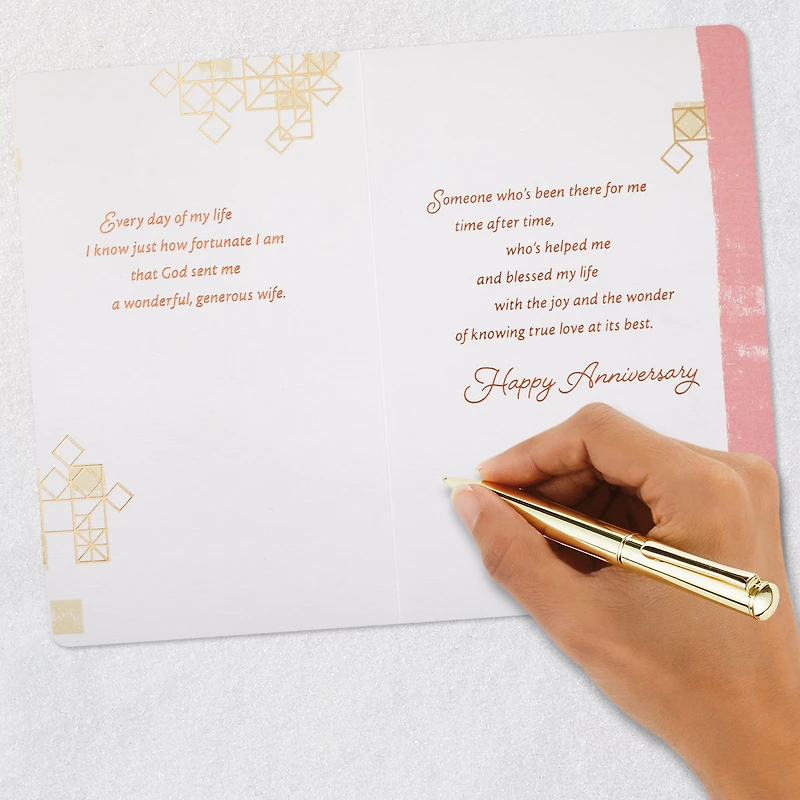 Every day of my life
I know just how fortunate I am
that God sent me
a wonderful, generous wife.
Someone who's been there for me
time after time,
who's helped me
and blessed my life
with the joy and the wonder
of knowing true love at its best.
Happy Anniversary